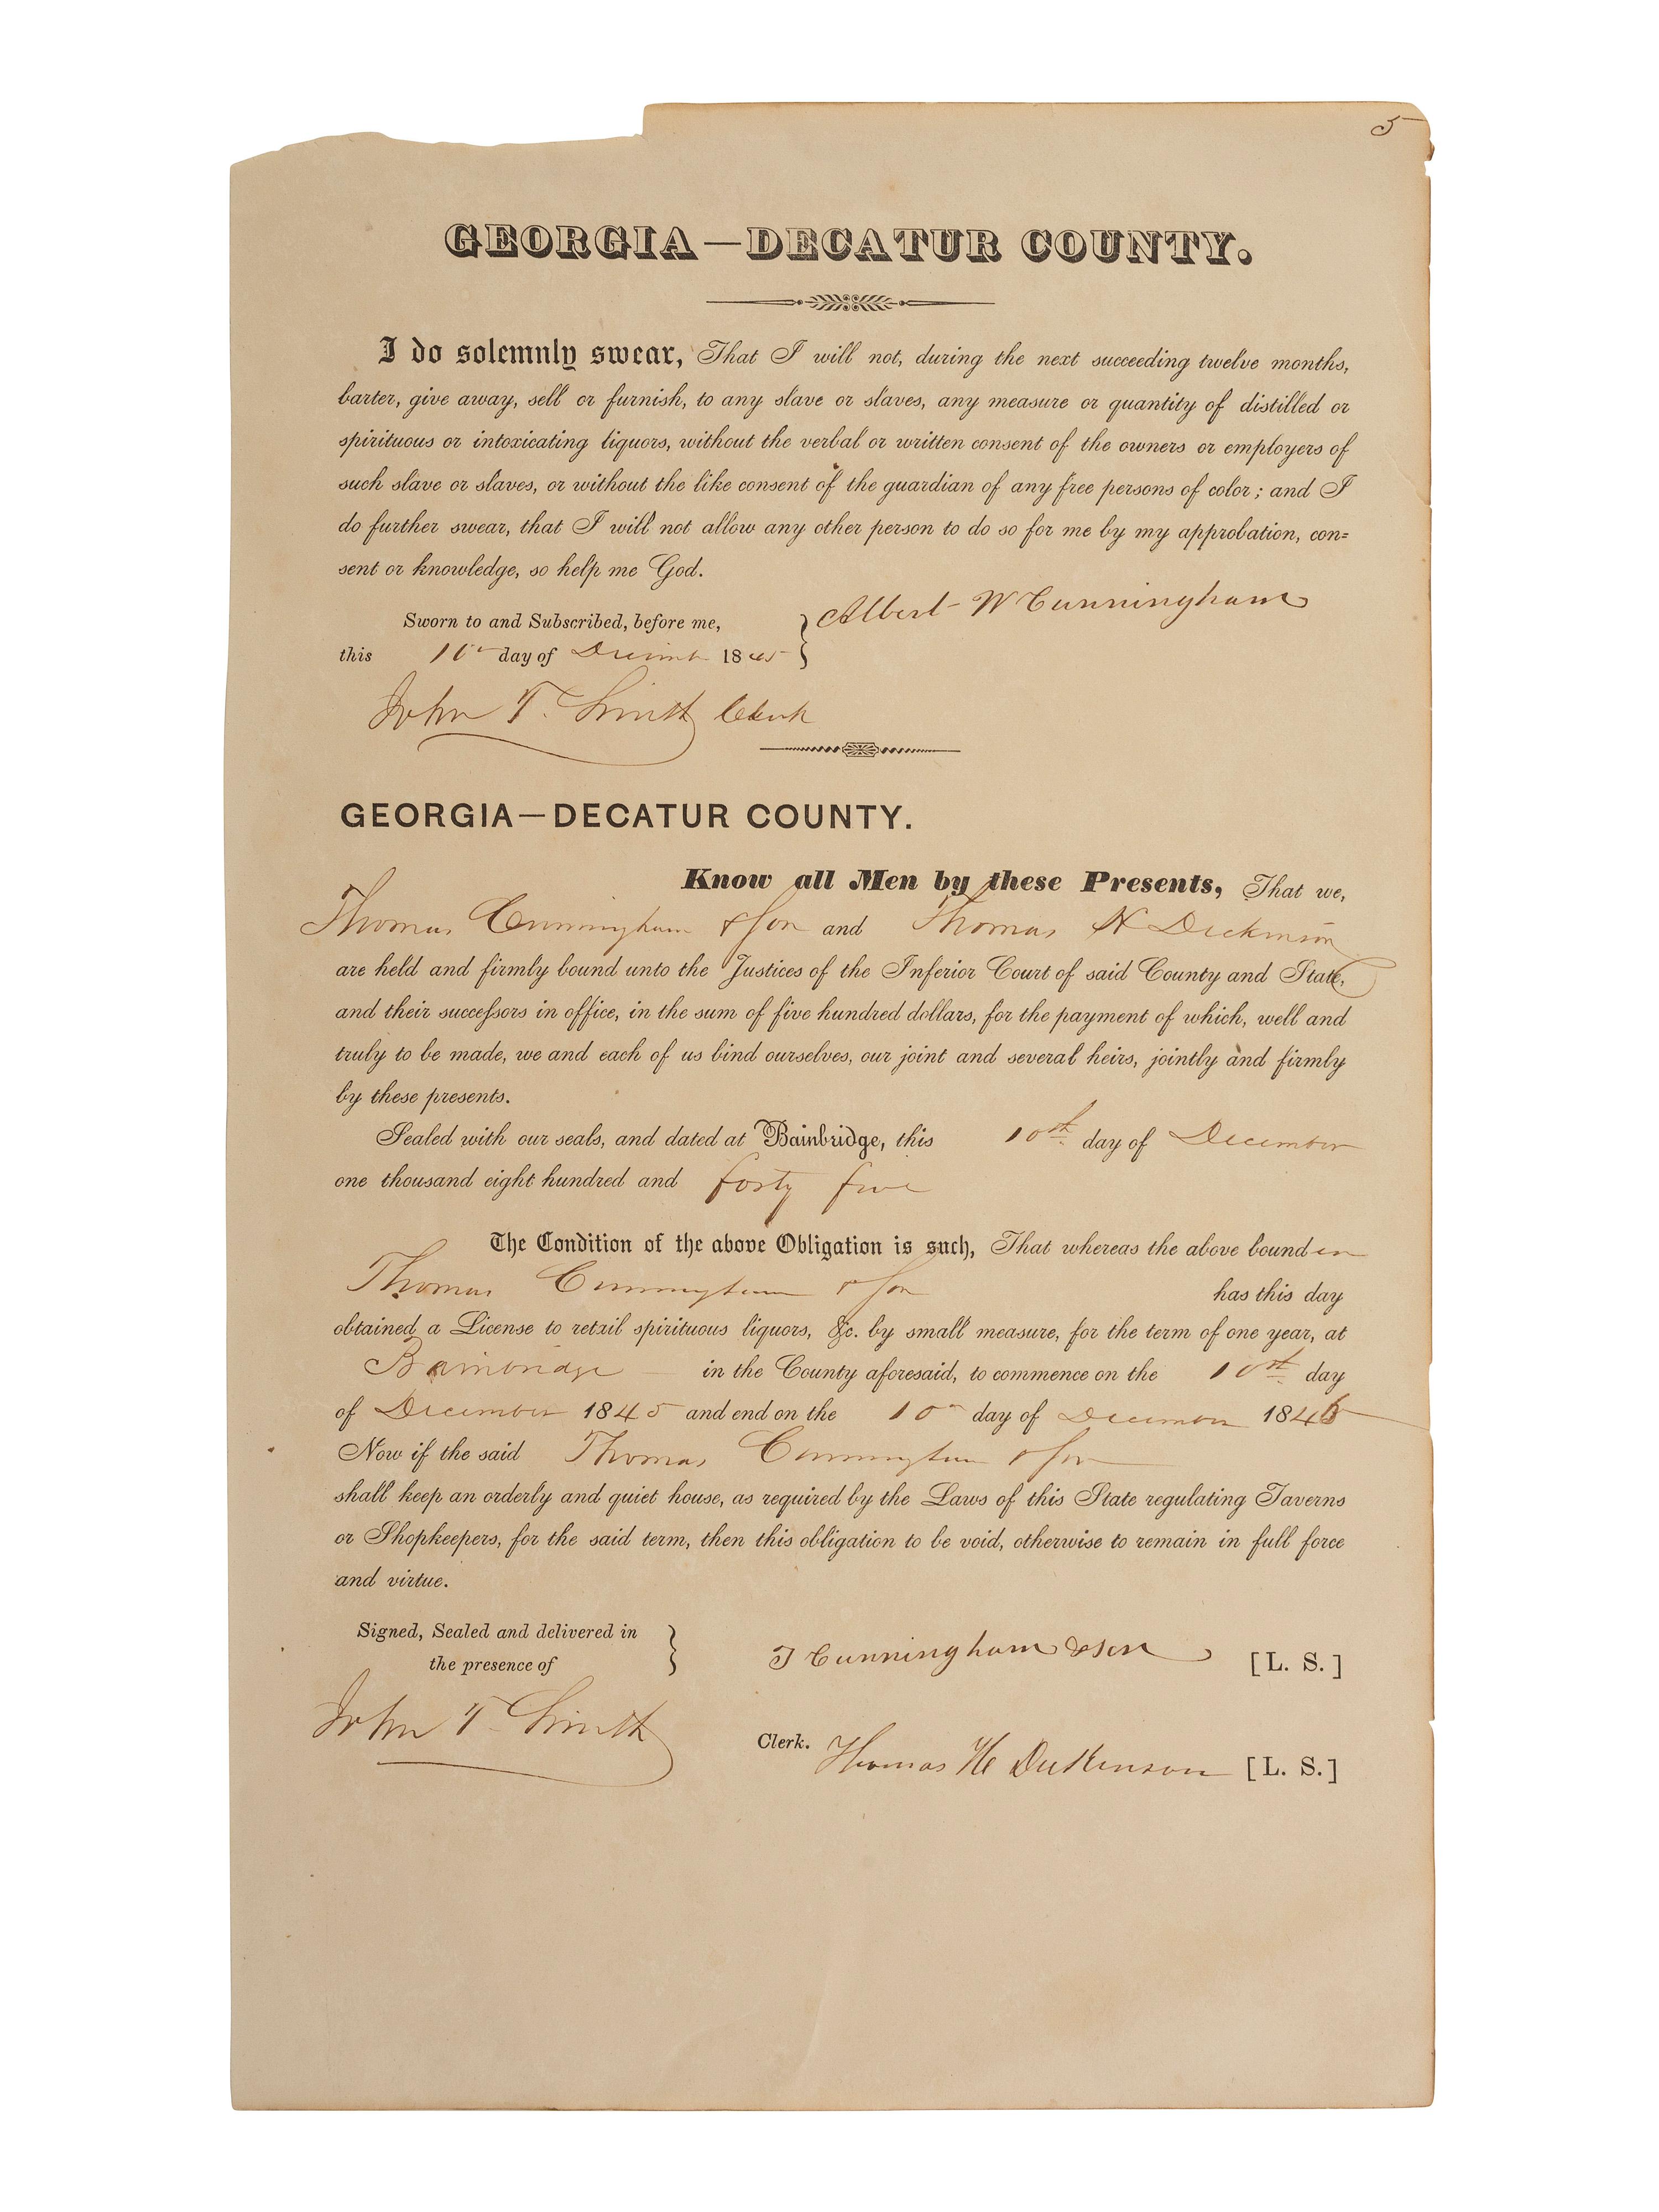 5
GEORGIA—DECATUR COUNTY.
I do solemnly swear, That I will not, during the next succeeding twelve months,
barter, give away, sell or furnish, to any slave or slaves, any measure or quantity of distilled or
spirituous or intoxicating liquors, without the verbal or written consent of the owners or employers of
such slave or slaves, or without the like consent of the guardian of any free persons of color; and I
do further swear, that I will not allow any other person to do so for me by my approbation, con=
sent or knowledge, so help me God.
Albert W Cunningham
Sworn to and Subscribed, before me,
this day of December 1845
John T. Smith Clerk
GEORGIA—DECATUR COUNTY.
Know all Men by these Presents, That we,
Thomas Cunningham & Son and Thomas H Dickinson
are held and firmly bound unto the Justices of the Inferior Court of said County and State,
and their succeſsors in office, in the sum of five hundred dollars, for the payment of which, well and
truly to be made, we and each of us bind ourselves, our joint and several heirs, jointly and firmly
by these presents.
Sealed with our seals, and dated at Bainbridge, this 10st day of December
one thousand eight hundred and forty five
The Condition of the above Obligation is such, That whereas the above bounden
Thomas Cunningham & Son has this day
obtained a License to retail spirituous liquors, &c. by small measure, for the term of one year, at
Bainbridge in the County aforesaid, to commence on the 10st day
of December 1845 and end on the 10 day of December 1846
Now if the said Thomas Cunningham & Son
shall keep an orderly and quiet house, as required by the Laws of this State regulating Taverns
or Shopkeepers, for the said term, then this obligation to be void, otherwise to remain in full force
and virtue.
Signed, Sealed and delivered in
the presence of
T Cunningham & Son [L. S.]
John T Smith
Clerk. Thomas H Dickinson [L. S.]